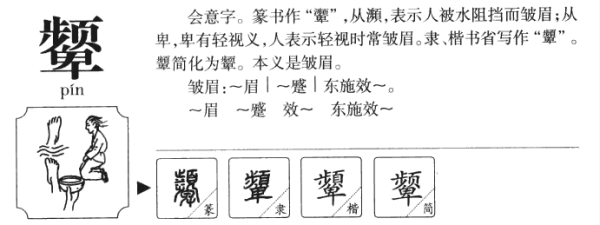 颦
pín
会意字。篆书作“顰”，从瀕，表示人被水阻挡而皱眉；从
卑，卑有轻视义，人表示轻视时常皱眉。隶、楷书省写作“顰”。
顰简化为颦。本义是皱眉。
皱眉：～眉｜～蹙｜东施效～。
～眉　～蹙　效～　东施效～
篆
隶
楷
简